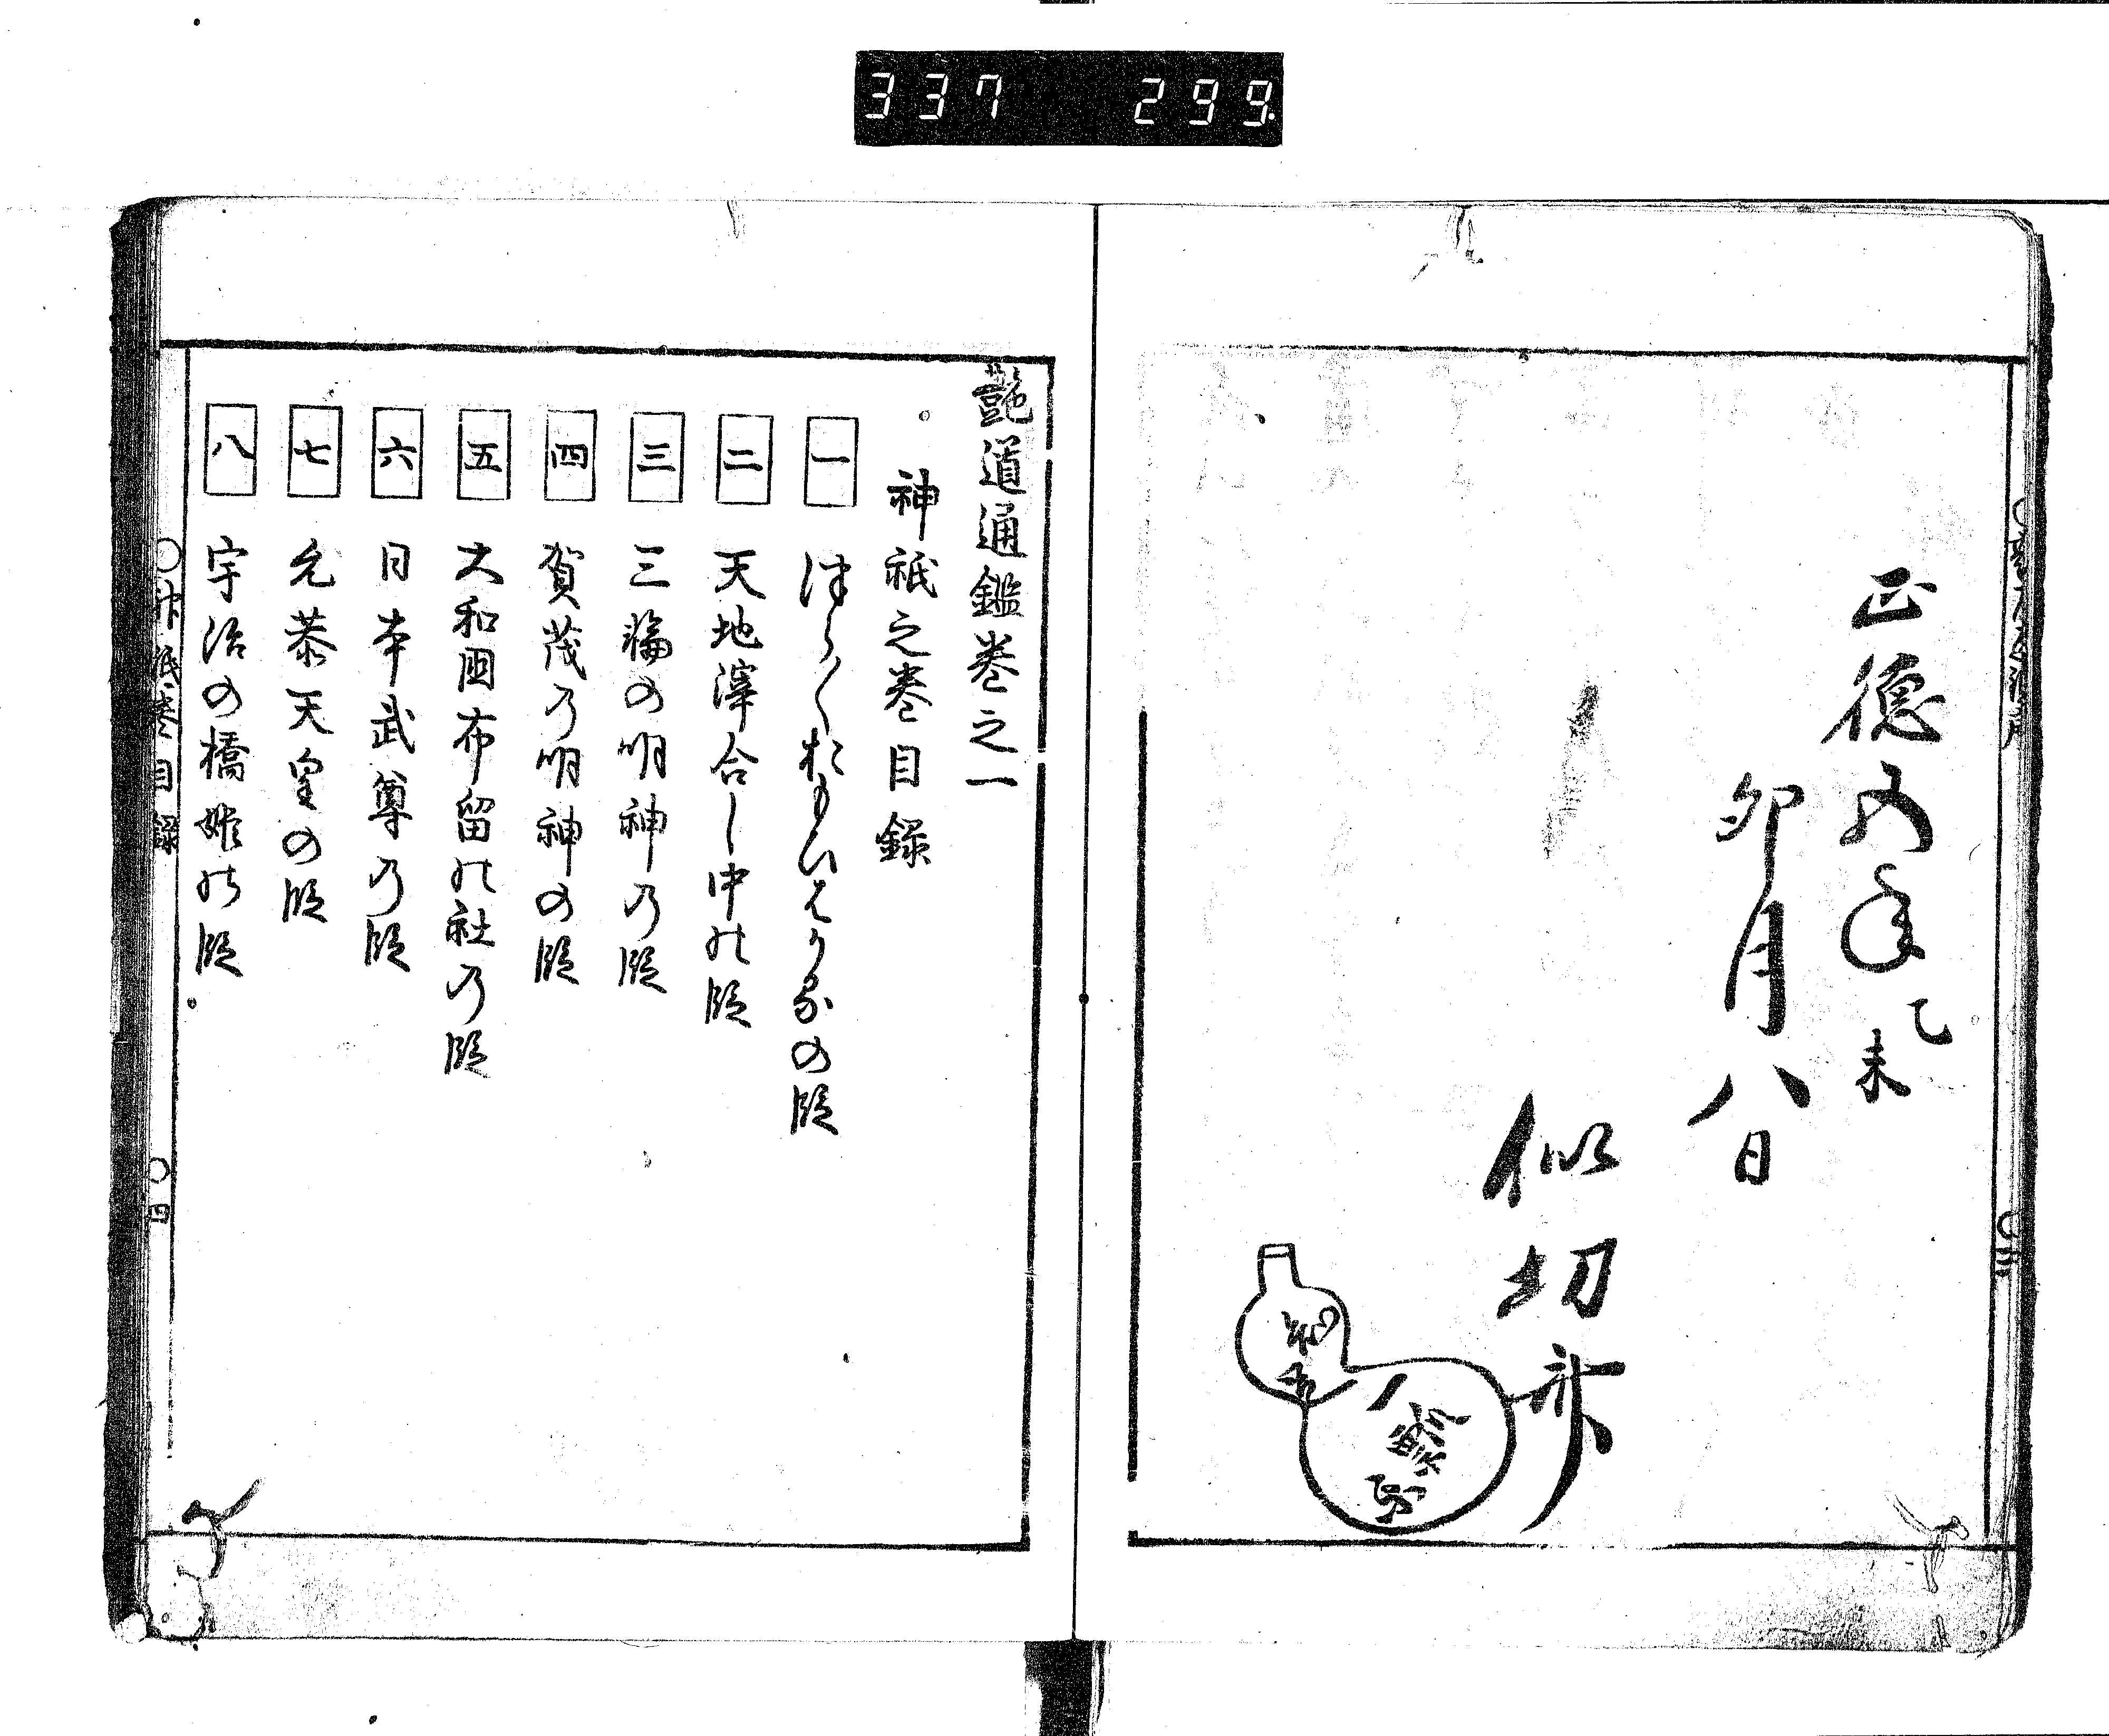 337 299
正徳五年乙未
卯月八日
似切斎
艷道通鑑巻之一
神祇之巻目録
一 つら〳〵おもひはかるの段
二 天地渾合し中の段
三 三輪の明神の段
四 賀茂の明神の段
五 大和国布留の社の段
六 日本武尊の段
七 允恭天皇の段
八 宇治の橋姫の段
○神祇巻目録 ○四